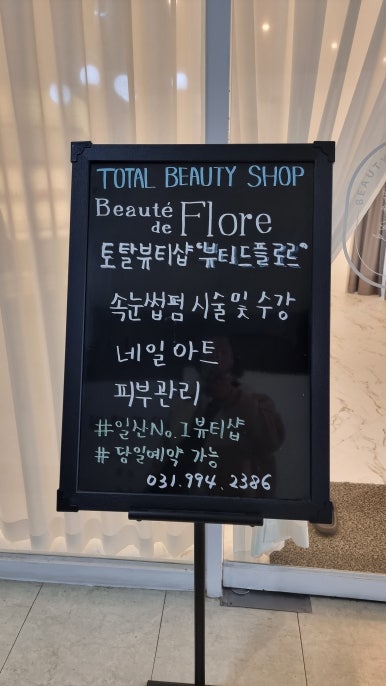 TOTAL BEAUTY SHOP
Beauté de Flore
토탈뷰티샵 "뷰티드플로르"
속눈썹펌 시술및 수강
네일아트
피부관리
#일산No.1뷰티샵
# 당일예약 가능
031.994.2386
BEAUT